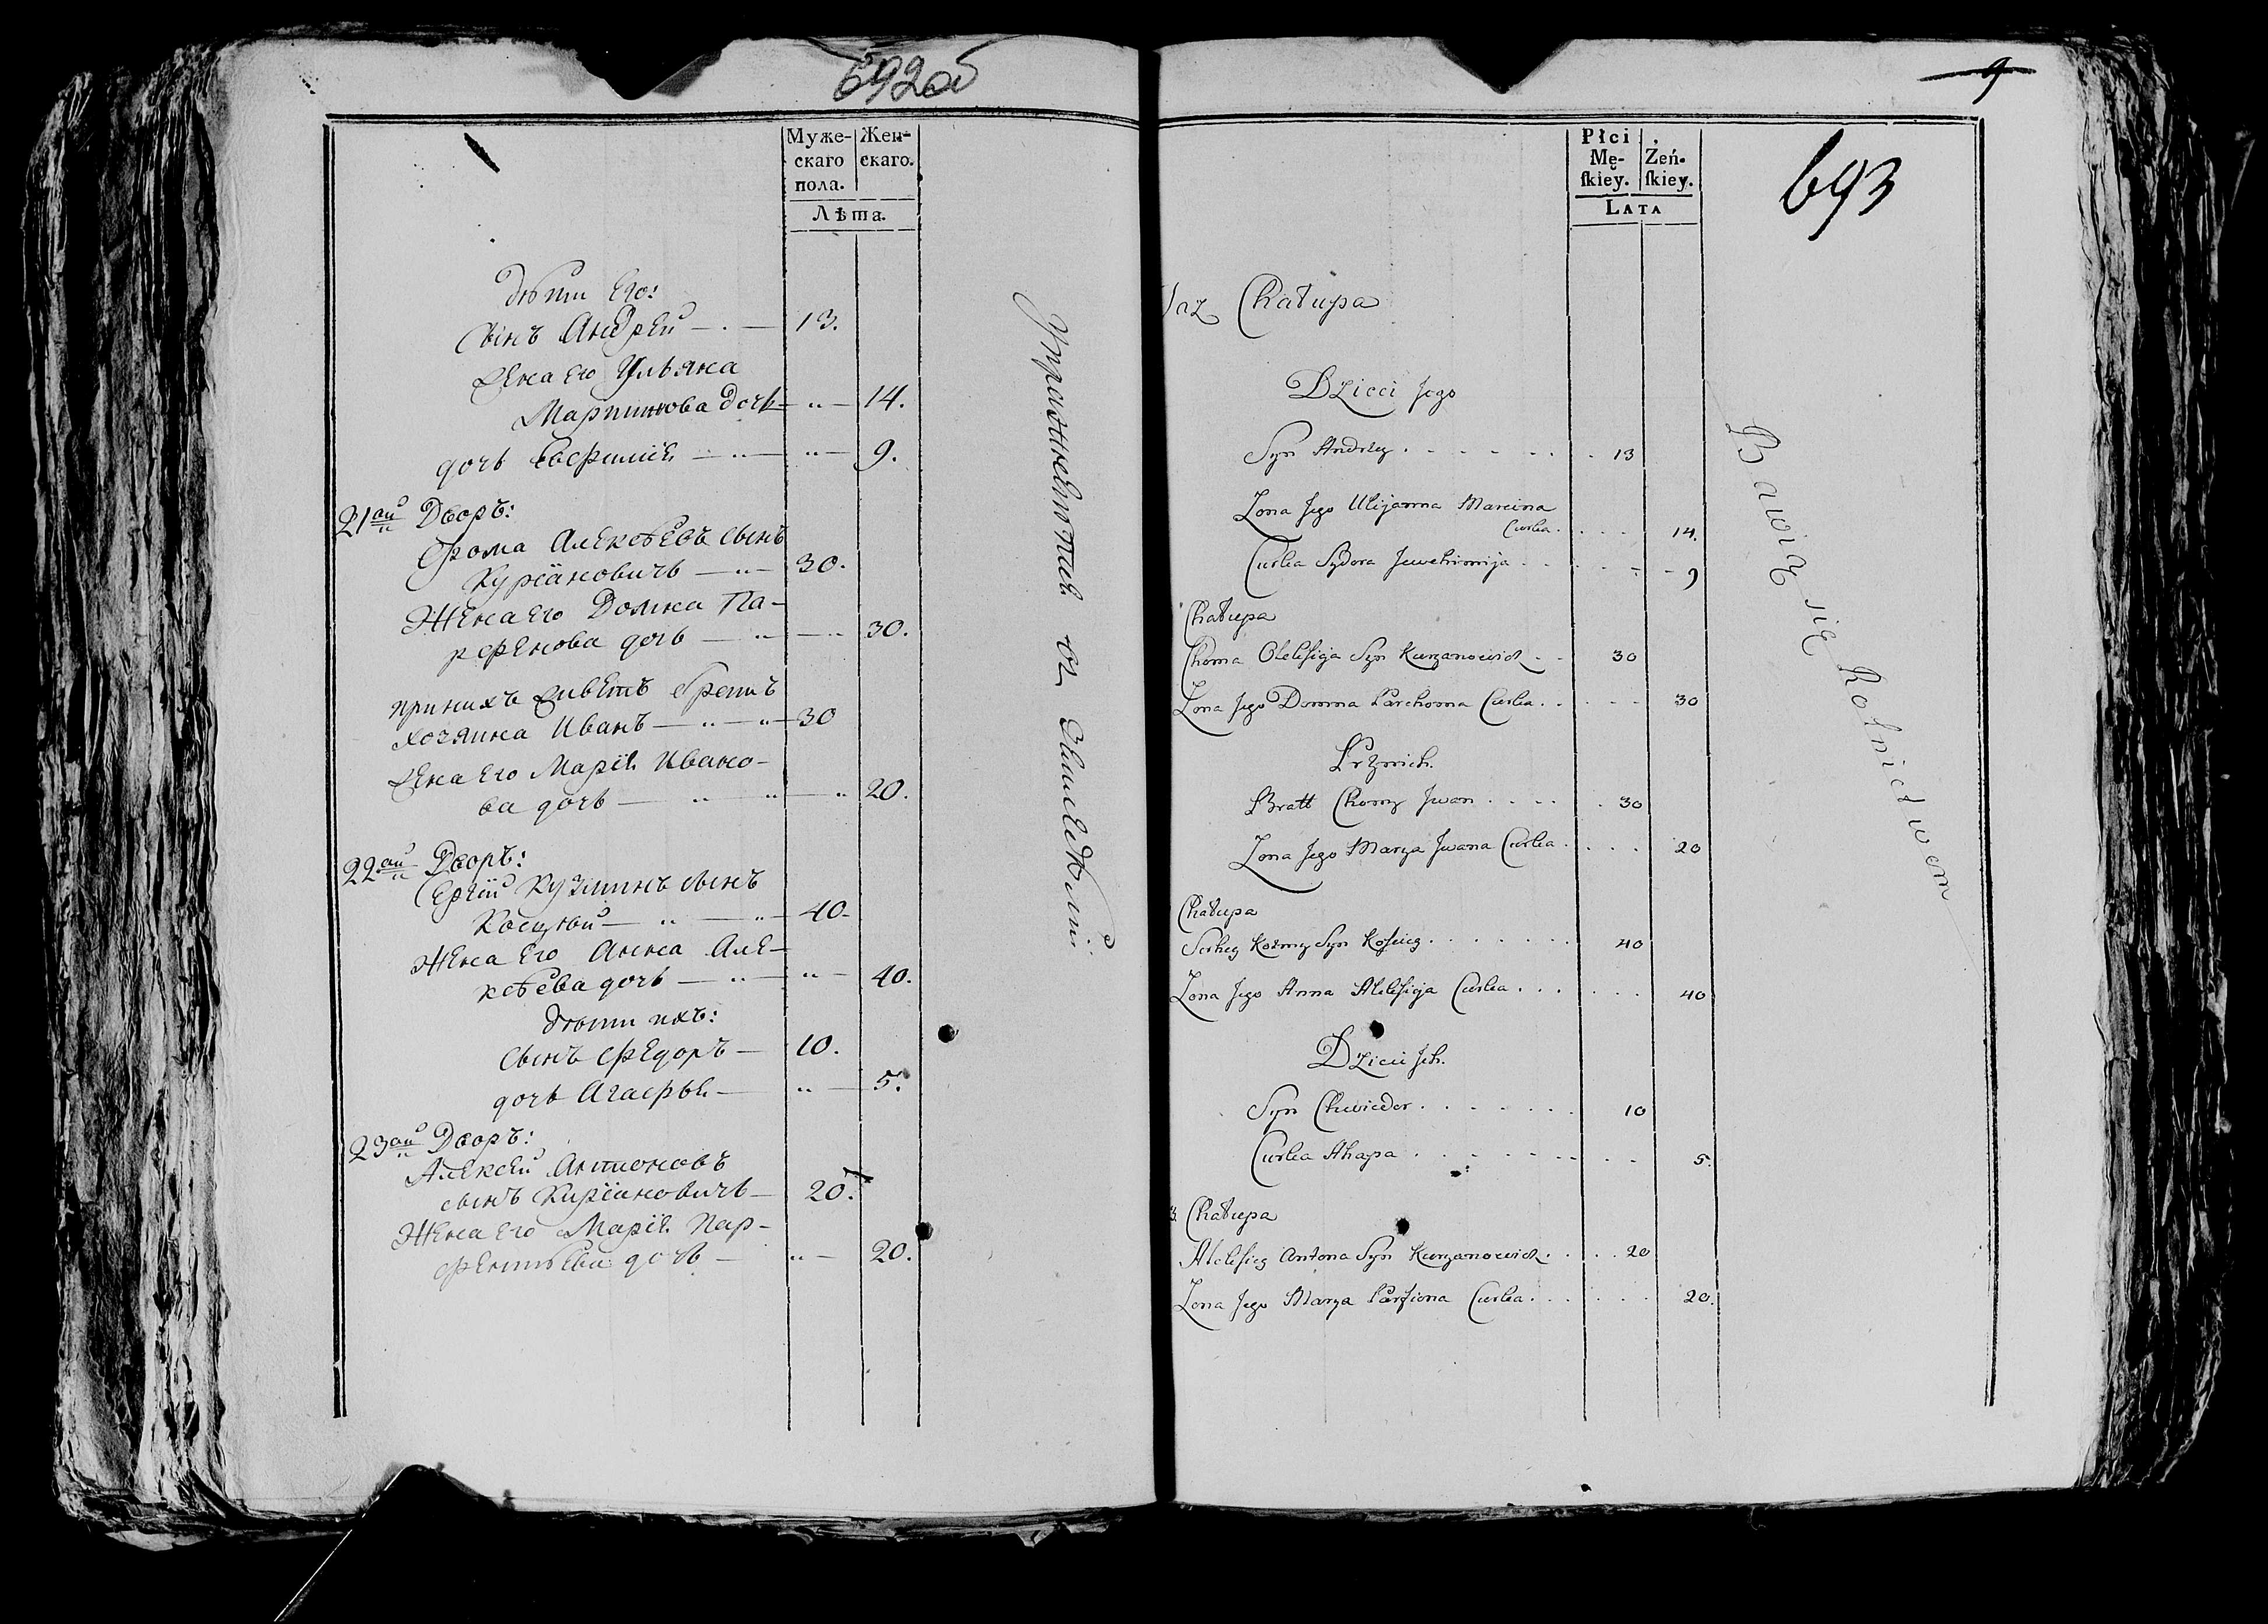 692об
Муже-
скаго
пола.
Жен-
скаго.
Лѣта.
дѣти Его:
Сынъ Андрей — 13.
Жена Его Ульяна
Мартинова дочь — 14.
дочь Евфимія — 9.
21ый Дворъ:
Фома Алексѣевъ сынъ
Куріановичъ — 30.
Жена Его Домна Па-
рфенова дочь — 30.
при нихъ живетъ братъ
хозяина Иванъ — 30
Жена Его Марія Ивано-
ва дочь — 20.
22ой Дворъ:
Сергій Кузминъ сынъ
40.
Жена Его Анна Але-
ксѣева дочь — 40.
дѣти ихъ:
сынъ Федоръ — 10.
дочь Агафья — 5.
23ий Дворъ:
Алексей Антоновъ
сынъ Киріановичъ — 20.
Жена Его Марія Пар-
фентьева дочь — 20.
Упражняются въ Земледѣліи.
9
693
Płci
Mę-
ſkiey.
Żeń-
ſkiey.
LATA
Chałupa
Dzieci Jego
Syn Andrzey . . . . 13
Zona Jego Ulijanna Marcina
Curka . . . . 14.
Curka Sydora Jewchimija . . . . 9
Chałupa
Choma Olekſieja Syn Kuryanowicz . . 30
Zona Jego Domna Parchoma Curka . . . . 30
Przynich.
Bratt Chomy Jwan . . . . 30
Zona Jego Marya Jwana Curka . . . . 20
Chałupa
Serhey Koźmy Syn Koſciey . . . . 40
Zona Jego Anna Alekſieja Curka . . . . 40
Dzieci Jch.
Syn Chwiedor . . . . 10
Curka Ahapa . . . . 5.
3. Chałupa
Alekſiey Antona Syn Kuryanowicz . . . . 20
Zona Jego Marya Parfiona Curka . . . . 20.
Bawią się Rolnictwem